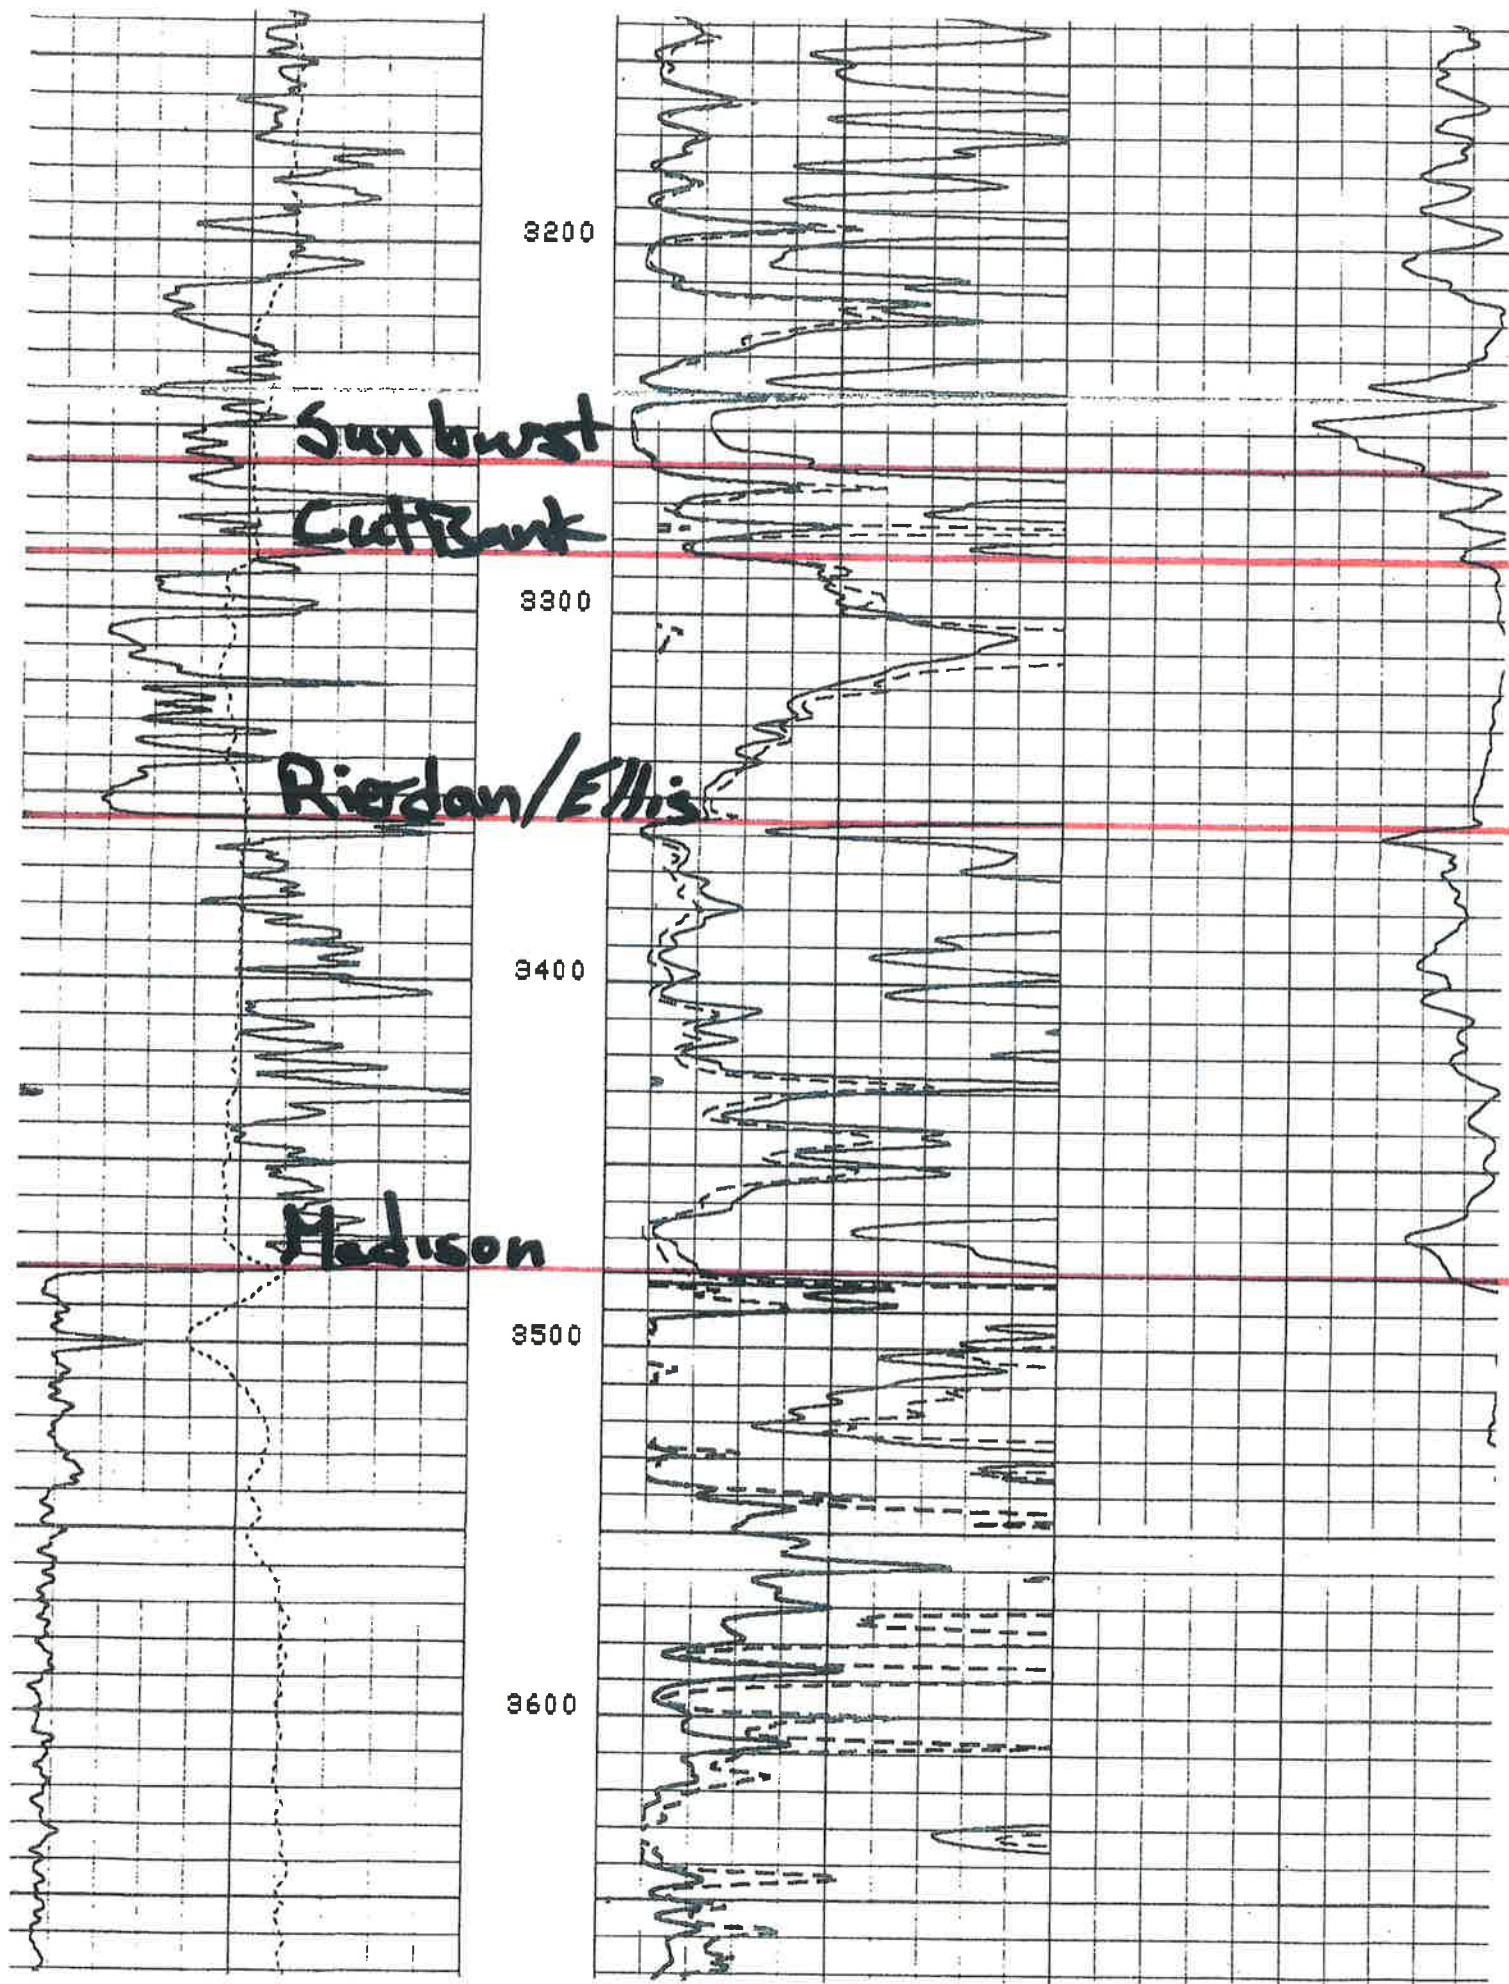 3200
Sunburst
CutBank
3300
Rierdon/Ellis
3400
Madison
3500
3600